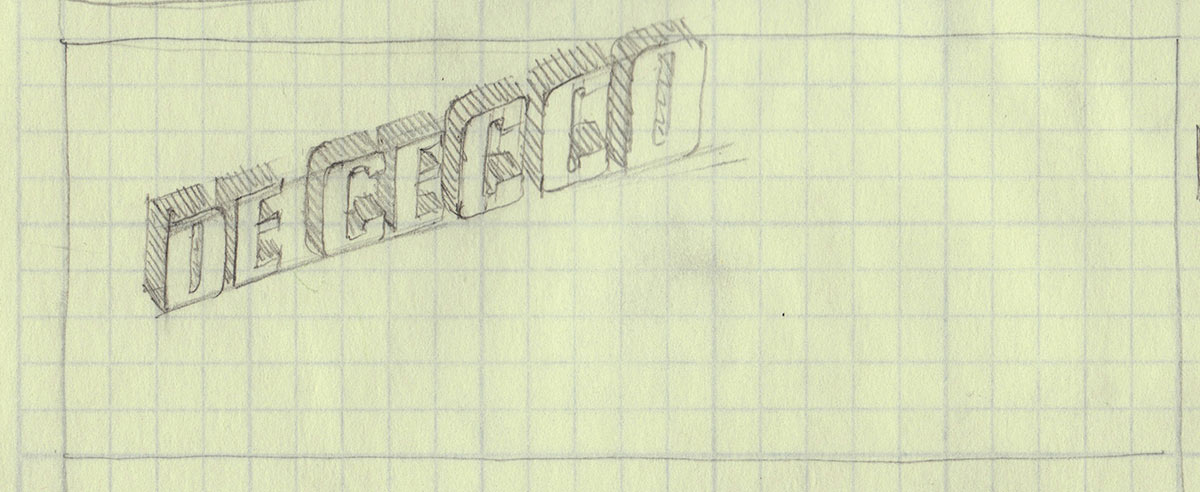 DE CECCO